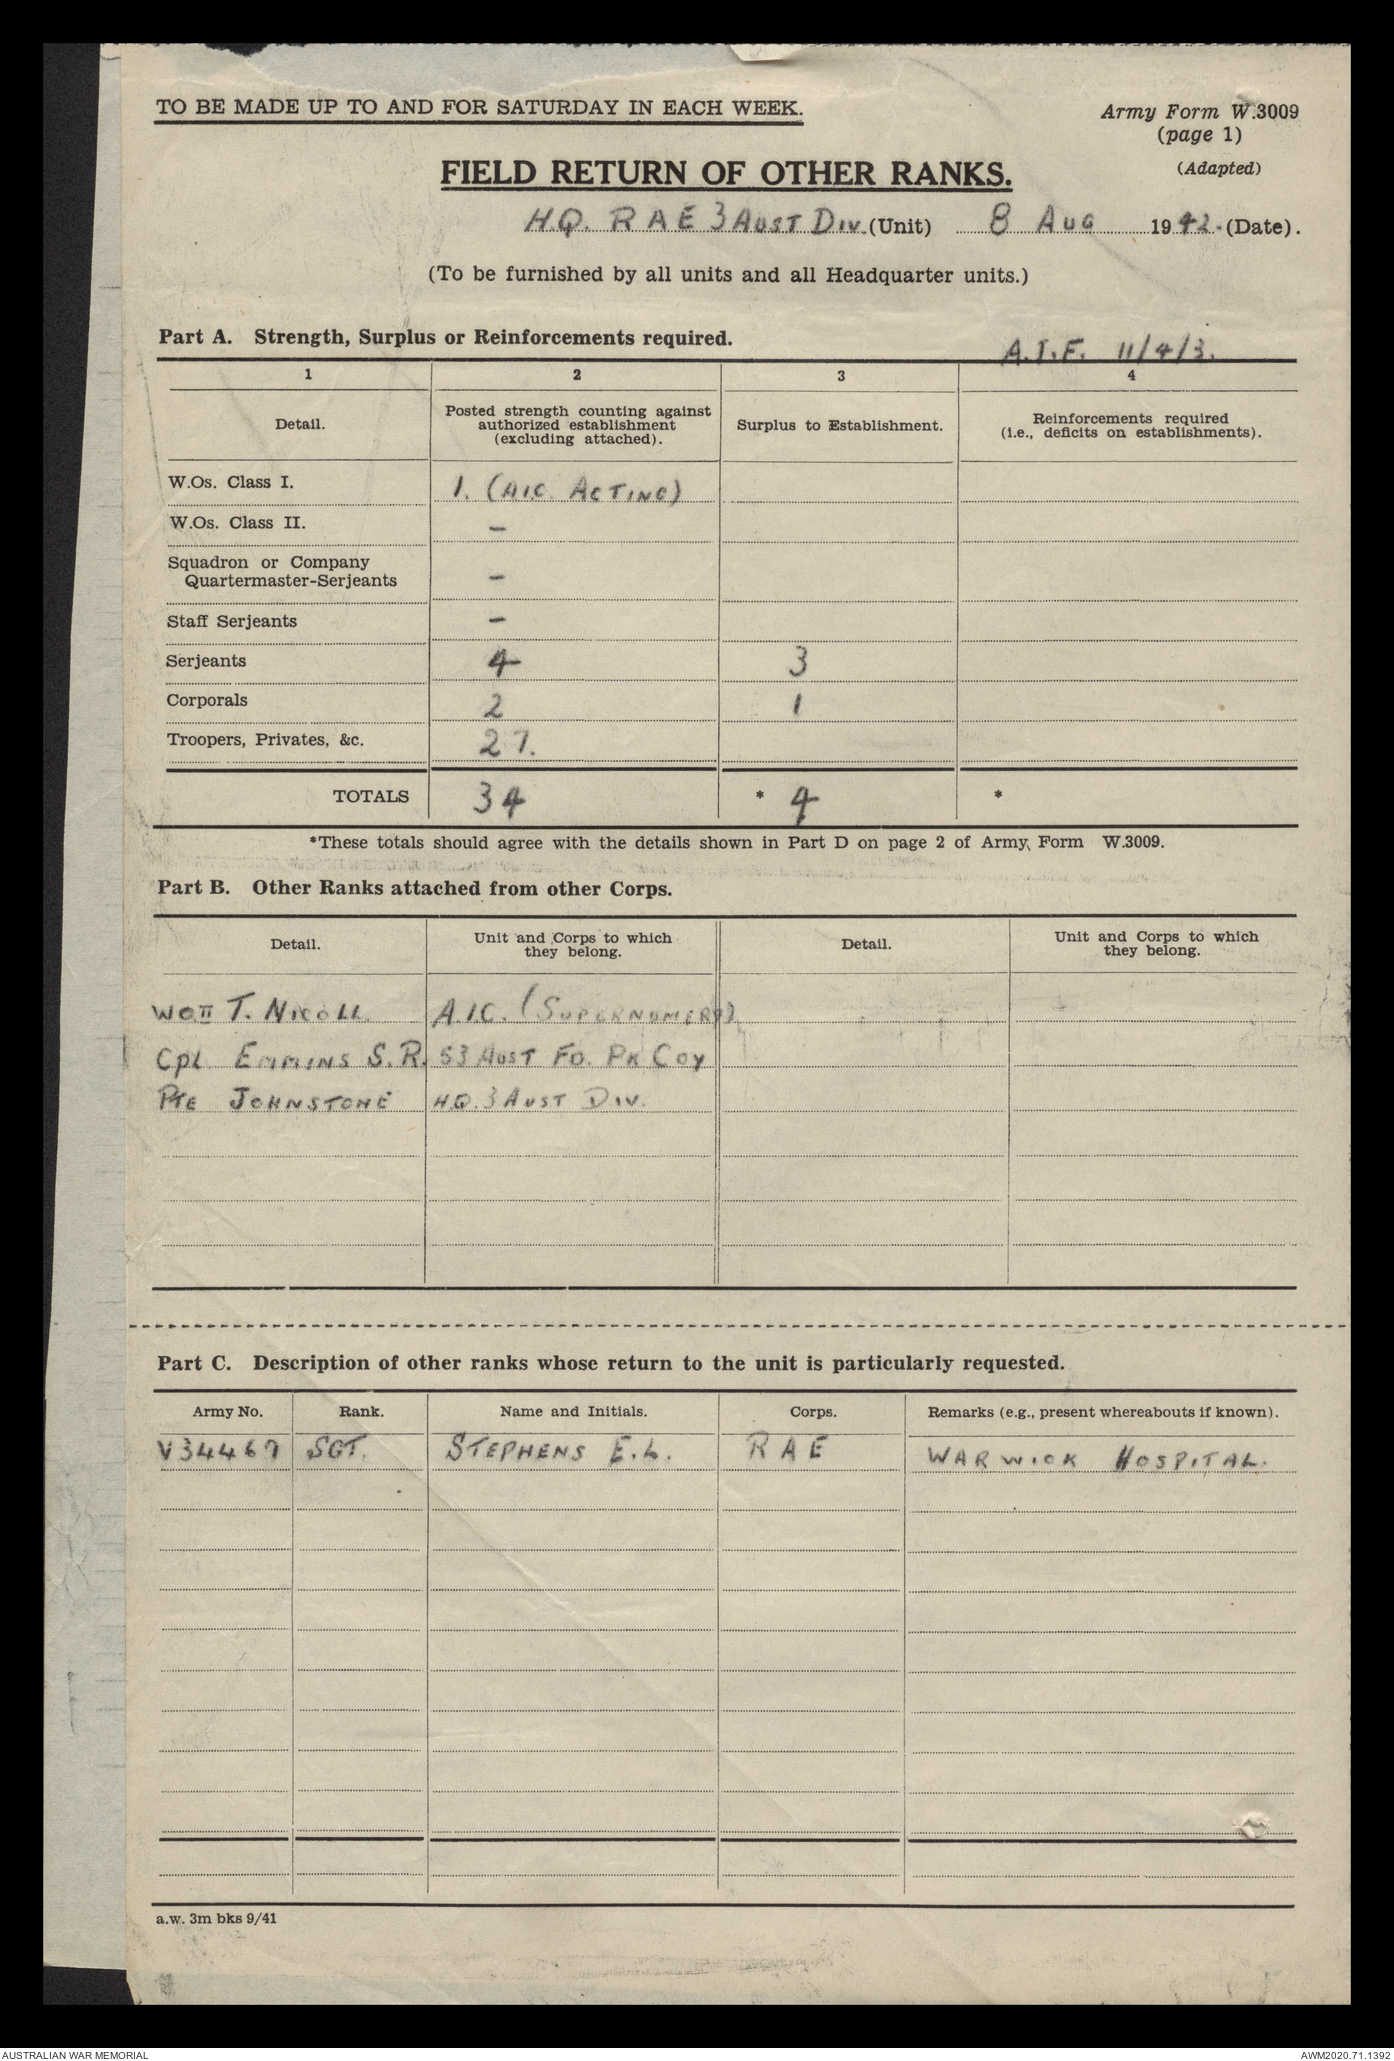 TO BE MADE UP TO AND FOR SATURDAY IN EACH WEEK.
Army Form W.3009
(page 1)
(Adapted)
FIELD RETURN OF OTHER RANKS.
H.Q. RAE 3 AUST DIV. (Unit) 8 AUG 1942. (Date).
(To be furnished by all units and all Headquarter units.)
Part A. Strength, Surplus or Reinforcements required.
A.I.F. 11/4/3.
1 2 3 4
Detail. Posted strength counting against authorized establishment (excluding attached). Surplus to Establishment. Reinforcements required (i.e., deficits on establishments).
W.Os. Class I. 1. (AIC ACTING)
W.Os. Class II. -
Squadron or Company
Quartermaster-Serjeants -
Staff Serjeants -
Serjeants 4 3
Corporals 2 1
Troopers, Privates, &c. 27.
TOTALS 34 * 4 *
*These totals should agree with the details shown in Part D on page 2 of Army Form W.3009.
Part B. Other Ranks attached from other Corps.
Detail. Unit and Corps to which they belong. Detail. Unit and Corps to which they belong.
WOII T. NICOLL A.I.C. (SUPERNUMERY)
Cpl EMMINS S.R. 53 AUST FD. PK COY
PTE JOHNSTONE H.Q. 3 AUST DIV.
Part C. Description of other ranks whose return to the unit is particularly requested.
Army No. Rank. Name and Initials. Corps. Remarks (e.g., present whereabouts if known).
V34467 SGT. STEPHENS E.L. RAE WARWICK HOSPITAL.
a.w. 3m bks 9/41
AUSTRALIAN WAR MEMORIAL AWM2020.71.1392